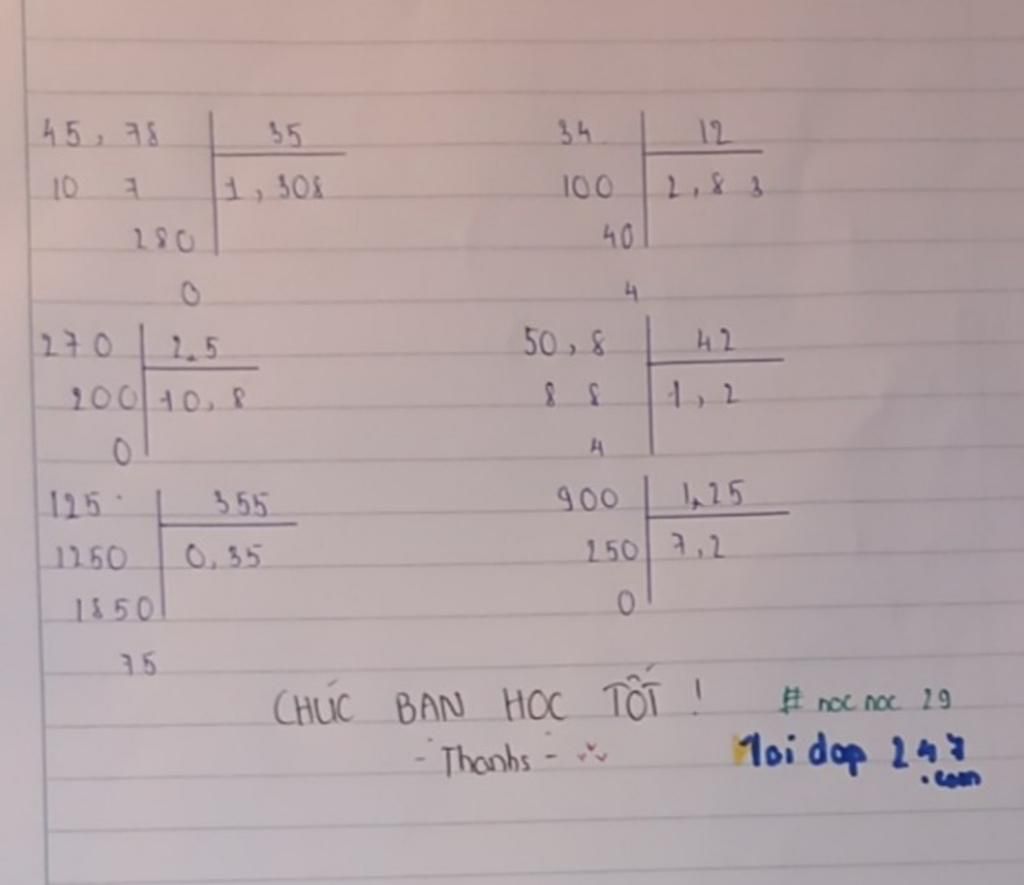 45,78 35
10 7 1,308
280
0
34 12
100 2,83
40
4
270 2.5
200 10,8
0
50,8 42
8 8 1,2
4
125 355
1250 0,35
1850
75
900 1,25
250 7,2
0
CHÚC BẠN HỌC TỐT !
- Thanhs -
# noc noc 29
Moi dap 247
.com